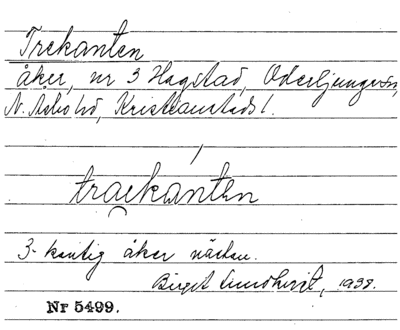 Trekanten
åker, nr 3 Hagstad, Oderljunga sn,
N. Åsbo hd, Kristianstads l.
traekanten
3-kantig åker nästan.
Birgit Lundkvist, 1938.
Nr 5499.